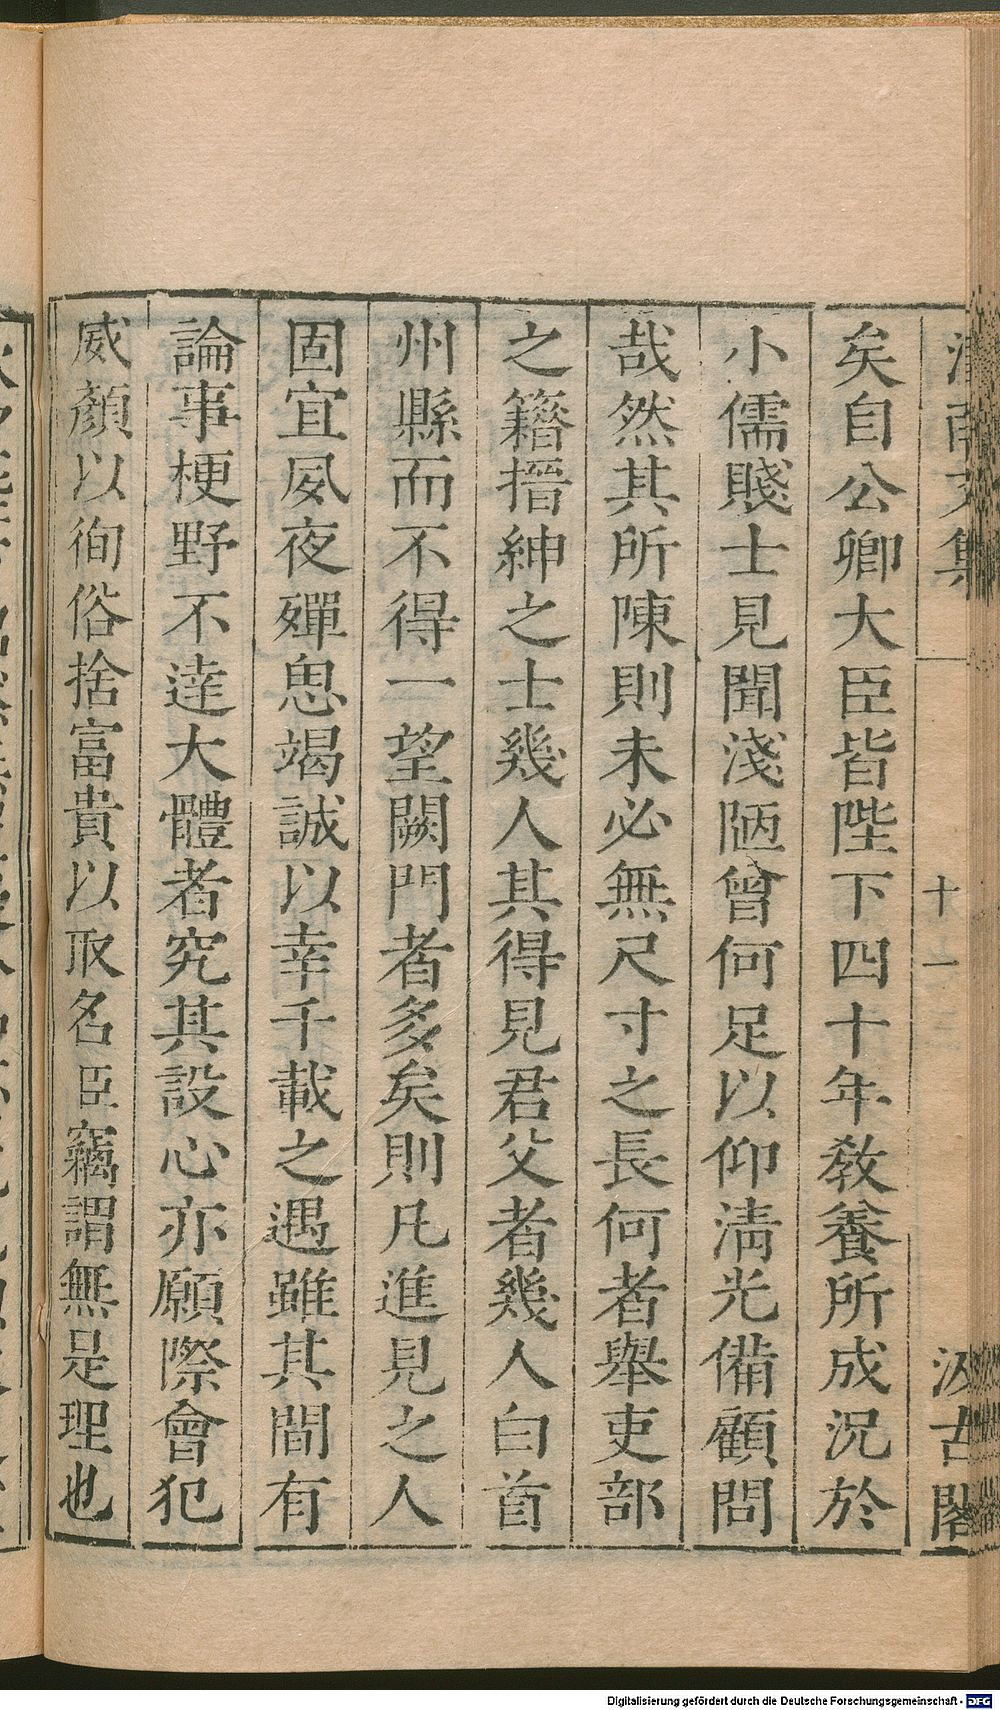 渭南文集
十一
汲古閣
矣自公卿大臣皆陛下四十年敎養所成況於
小儒賤士見聞淺陋曾何足以仰淸光備顧問
哉然其所陳則未必無尺寸之長何者舉吏部
之籍搢紳之士幾人其得見君父者幾人白首
州縣而不得一望闕門者多矣則凡進見之人
固宜夙夜殫思竭誠以幸千載之遇雖其間有
論事梗野不達大體者究其設心亦願際會犯
威顏以徇俗捨富貴以取名臣竊謂無是理也
Digitalisierung gefördert durch die Deutsche Forschungsgemeinschaft - DFG